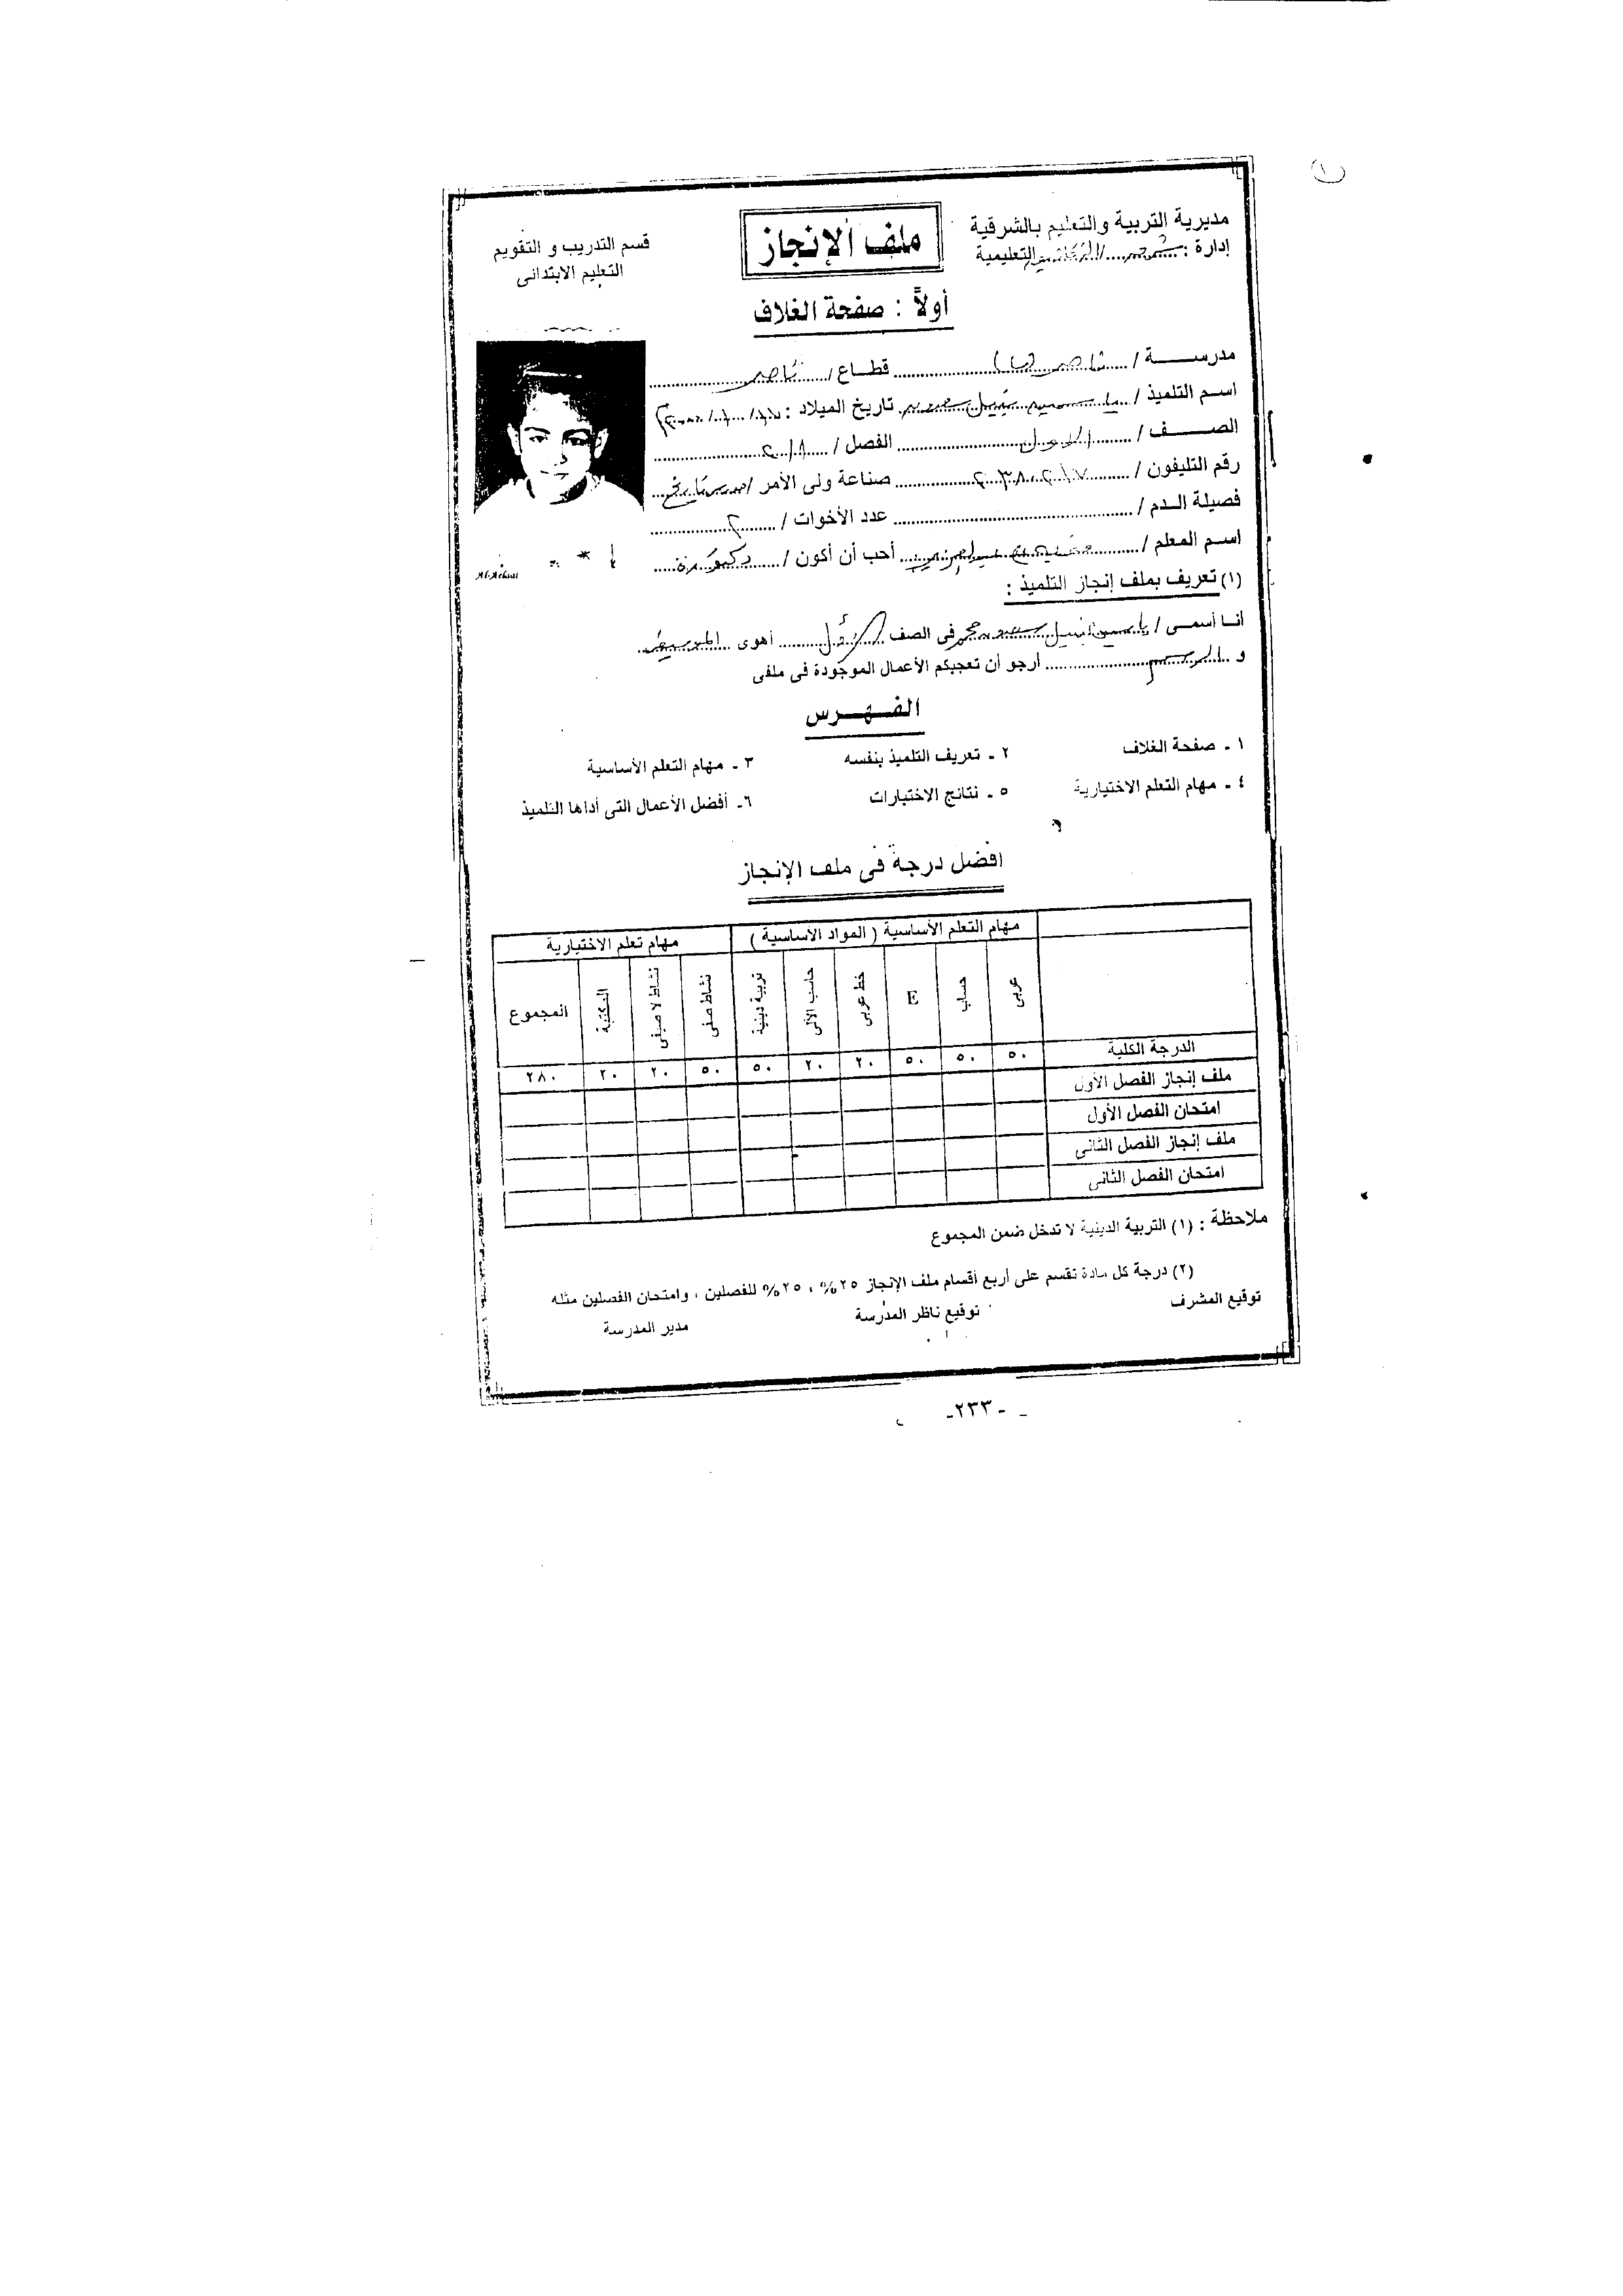 (١)
مديرية التربية والتعليم بالشرقية
إدارة : التعليمية
ملف الإنجاز
قسم التدريب و التقويم
التعليم الابتدائى
أولاً : صفحة الغلاف
مدرســـة / ناصر قطـاع / ناصر
اسـم التلميذ / ياسمين نبيل سعيد تاريخ الميلاد :
الصـــف / الأول الفصل /
رقم التليفون / صناعة ولى الأمر / مدرس تاريخ
فصيلة الـدم / عدد الأخوات / ٢
اسـم المعلم / أحب أن أكون / دكتورة
(١) تعريف بملف إنجاز التلميذ :
أنـا أسمـى / ياسمين نبيل سعيد فى الصف الأول أهوى الموسيقى
و الرسم أرجو أن تعجبكم الأعمال الموجودة فى ملفى
الفـهـرس
١ - صفحة الغلاف ٢ - تعريف التلميذ بنفسه ٣ - مهام التعلم الأساسية
٤ - مهام التعلم الاختيارية ٥ - نتائج الاختبارات ٦- أفضل الأعمال التى أداها التلميذ
افضل درجة فى ملف الإنجاز
مهام التعلم الأساسية ( المواد الأساسية ) مهام تعلم الاختيارية
عربى حساب E خط عربى حاسب الآلى تربية دينية نشاط صفى نشاط لا صيفى المكتبة المجموع
الدرجة الكلية ٥٠ ٥٠ ٥٠ ٢٠ ٢٠ ٥٠ ٥٠ ٢٠ ٢٠ ٢٨٠
ملف إنجاز الفصل الأول
امتحان الفصل الأول
ملف إنجاز الفصل الثانى
امتحان الفصل الثانى
ملاحظة : (١) التربية الدينية لا تدخل ضمن المجموع
(٢) درجة كل مادة تقسم على أربع أقسام ملف الإنجاز ٢٥% ، ٢٥% للفصلين ، وامتحان الفصلين مثله
توقيع المشرف توقيع ناظر المدرسة مدير المدرسة
-٢٣٣-